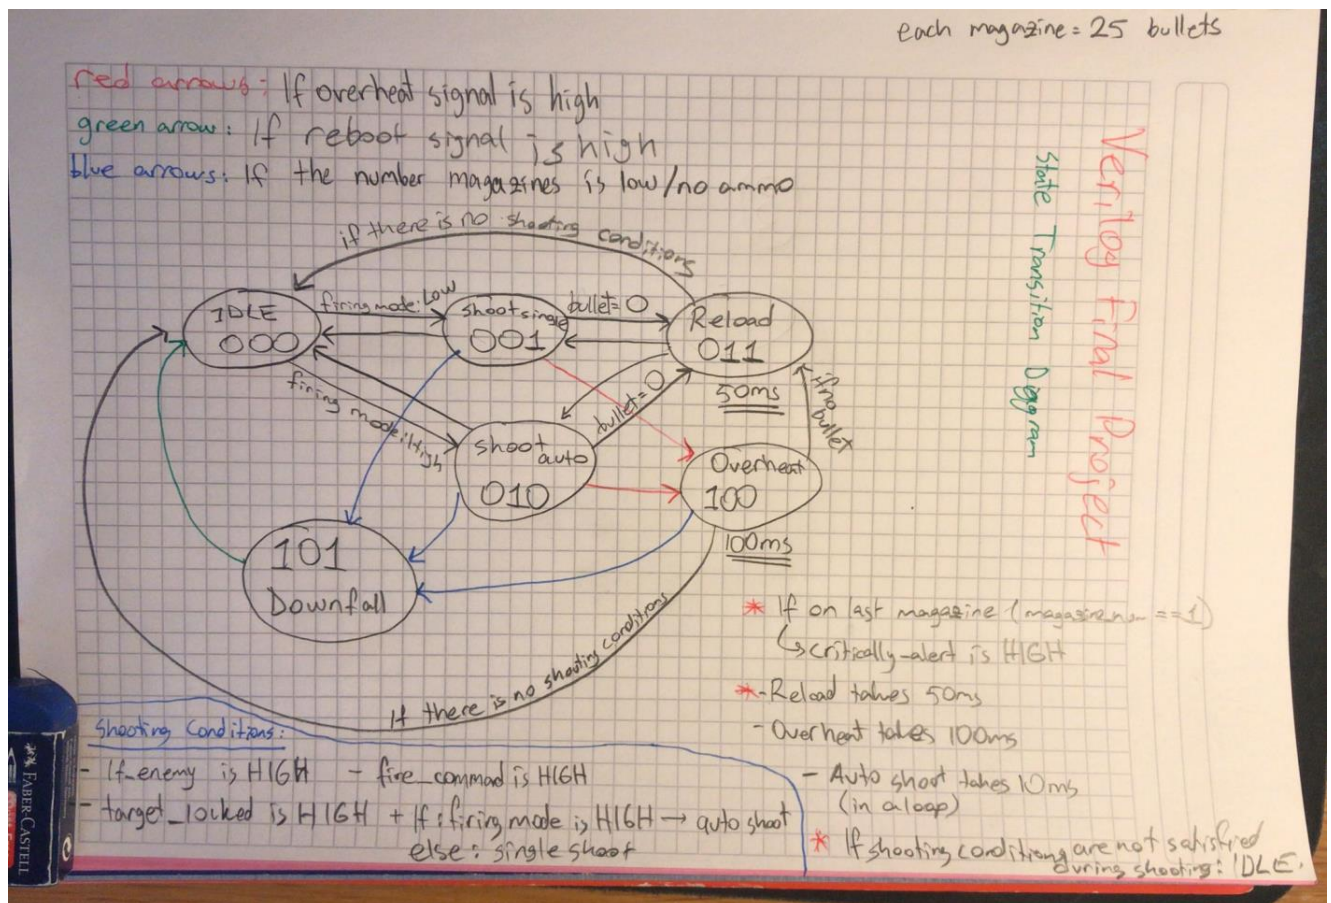 each magazine = 25 bullets
red arrows: If overheat signal is high
green arrow: If reboot signal is high
blue arrows: If the number magazines is low/no ammo
Verilog Final Project
State Transition Diagram
if there is no shooting conditions
IDLE
000
firing mode: Low
shoot single
001
bullet = 0
Reload
011
50ms
firing mode: High
shoot auto
010
bullet = 0
if no bullet
Overheat
100
100ms
101
Downfall
If there is no shooting conditions
* If on last magazine (magazine_num == 1)
critically_alert is HIGH
* - Reload takes 50ms
- Overheat takes 100ms
- Auto shoot takes 10ms
(in a loop)
* If shooting conditions are not satisfied
during shooting: IDLE.
Shooting Conditions:
- If_enemy is HIGH - fire_commad is HIGH
- target_locked is HIGH + If: firing mode is HIGH → auto shoot
else: single shoot
FABER-CASTELL